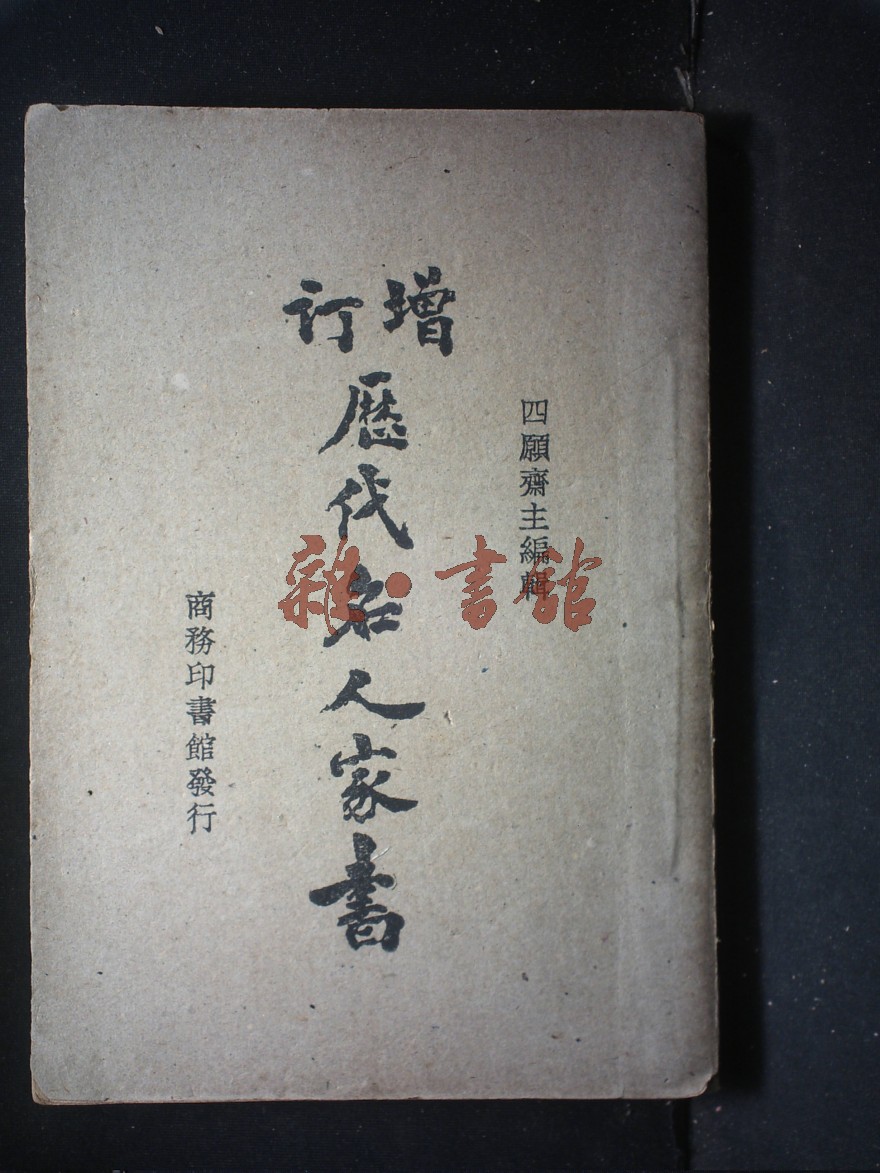 四願齋主編輯
增訂
歷代名人家書
商務印書館發行
雜·書館